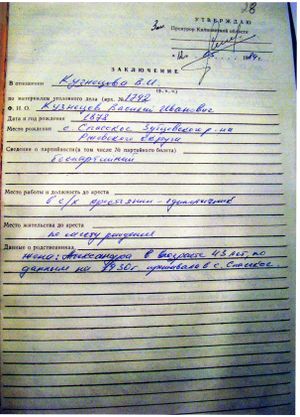 28
УТВЕРЖДАЮ
Зам
Прокурор Калининской области
ЗАКЛЮЧЕНИЕ
В отношении Кузнецова В.И.
(ф., и., о.)
по материалам уголовного дела (арх. № 1792
Ф. И. О. Кузнецов Василий Иванович
Дата и год рождения 1878
Место рождения с. Спасское Зубцовского р-на
Ржевского округа
Сведения о партийности (в том числе № партийного билета)
беспартийный
Место работы и должность до ареста
в с/х крестьянин-единоличник
Место жительства до ареста
по месту рождения
Данные о родственниках
жена: Александра в возрасте 43 лет, по
данным на 1930г. проживала в с. Спасское.